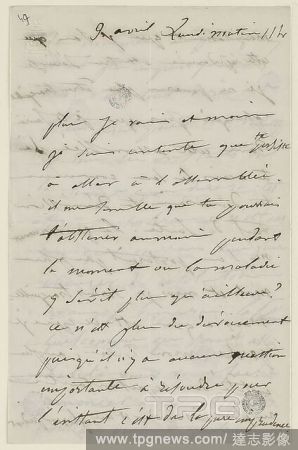 49
9 avril Lundi matin 11h
plus je vais et moins
je suis contente que tu persiste
à aller à l'assemblée.
il me semble que tu pourrais
t'abstenir au moins pendant
le moment où la maladie
sévit plus qu'ailleurs?
ce n'est plus du dévouement
puisqu'il n'y a aucune question
importante à résoudre pour
l'instant c'est de la pure imprudence
TPG
www.tpgnews.com / 達志影像